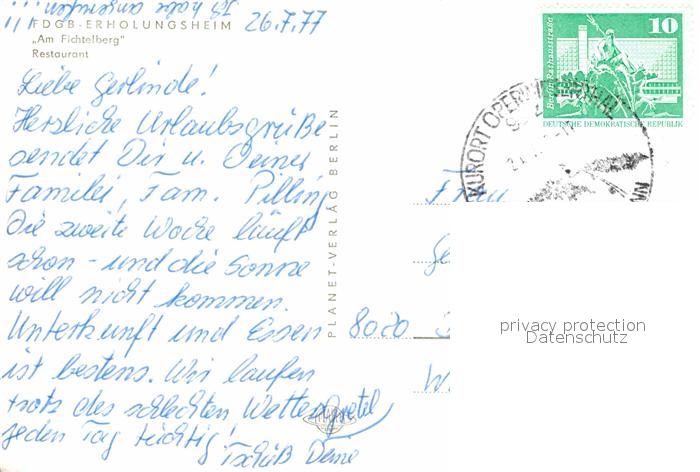 26.7.77
FDGB-ERHOLUNGSHEIM
„Am Fichtelberg"
Restaurant
Liebe Gerlinde!
Herzliche Urlaubsgrüße
sendet Dir u. Deiner
Familie, Fam. Pilling
Die zweite Woche läuft
schon - und die Sonne
will nicht kommen.
Unterkunft und Essen
ist bestens. Wir laufen
trotz des schlechten Wetters
jeden Tag tüchtig!
Tschüß Deine
PLANET-VERLAG BERLIN
10
Berlin, Rathausstraße
DEUTSCHE DEMOKRATISCHE REPUBLIK
KURORT OBERWIESENTHAL
Frau
Ge
8020
W
privacy protection
Datenschutz